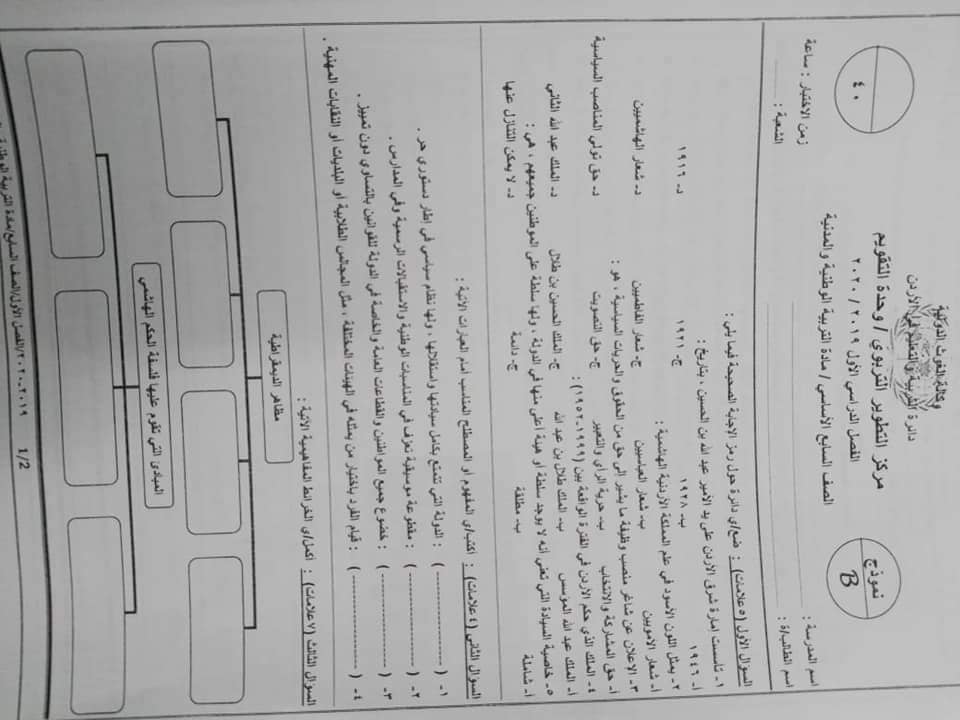 وكالة الغوث الدولية
دائرة التربية والتعليم في الأردن
مركز التطوير التربوي / وحدة التقويم
الفصل الدراسي الأول ٢٠١٩ / ٢٠٢٠
الصف السابع الأساسي / مادة التربية الوطنية والمدنية
نموذج
B
٤٠
اسم المدرسة :
زمن الاختبار : ساعة
اسم الطالب/ة :
الشعبة :
السؤال الأول (٥ علامات) : ضع/ي دائرة حول رمز الإجابة الصحيحة فيما يلي :
١- تأسست إمارة شرق الأردن على يد الأمير عبد الله بن الحسين ، بتاريخ :
أ- ١٩٤٦ ب- ١٩٢٨ ج- ١٩٢١ د- ١٩١٦
٢- يمثل اللون الأسود في علم المملكة الأردنية الهاشمية :
أ- شعار الأمويين ب- شعار العباسيين ج- شعار الفاطميين د- شعار الهاشميين
٣- الإعلان عن شاغر منصب وظيفة ما يشير إلى حق من الحقوق والحريات السياسية ، هو :
أ- حق المشاركة والانتخاب ب- حرية الرأي والتعبير ج- حق التصويت د- حق تولي المناصب السياسية
٤- الملك الذي حكم الأردن في الفترة الواقعة بين (١٩٩٩-١٩٥٢) :
أ- الملك عبد الله المؤسس ب- الملك طلال بن عبد الله ج- الملك الحسين بن طلال د- الملك عبد الله الثاني
٥- خاصية السيادة التي تعني أنه لا يوجد سلطة أو هيئة أعلى منها في الدولة ، ولها سلطة على المواطنين جميعهم ، هي :
أ- شاملة ب- مطلقة ج- دائمة د- لا يمكن التنازل عنها
السؤال الثاني (٤ علامات) : أكتب/ي المفهوم أو المصطلح المناسب أمام العبارات الآتية :
١- (----------------) : الدولة التي تتمتع بكامل سيادتها واستقلالها ، ولها نظام سياسي في إطار دستوري حر .
٢- (----------------) : مقطوعة موسيقية تعزف في المناسبات الوطنية والاستقبالات الرسمية وفي المدارس .
٣- (----------------) : خضوع جميع المواطنين والقطاعات العامة والخاصة في الدولة للقوانين بالتساوي دون تمييز .
٤- (----------------) : قيام الفرد باختيار من يمثله في الهيئات المختلفة ، مثل المجالس الطلابية أو البلديات أو النقابات المهنية .
السؤال الثالث (٧ علامات) : أكمل/ي الخرائط المفاهيمية الآتية :
مظاهر الديمقراطية
المبادئ التي تقوم عليها فلسفة الحكم الهاشمي
1/2 ٢٠١٩-٢٠٢٠/الفصل الأول/الصف السابع/مادة التربية الوطنية